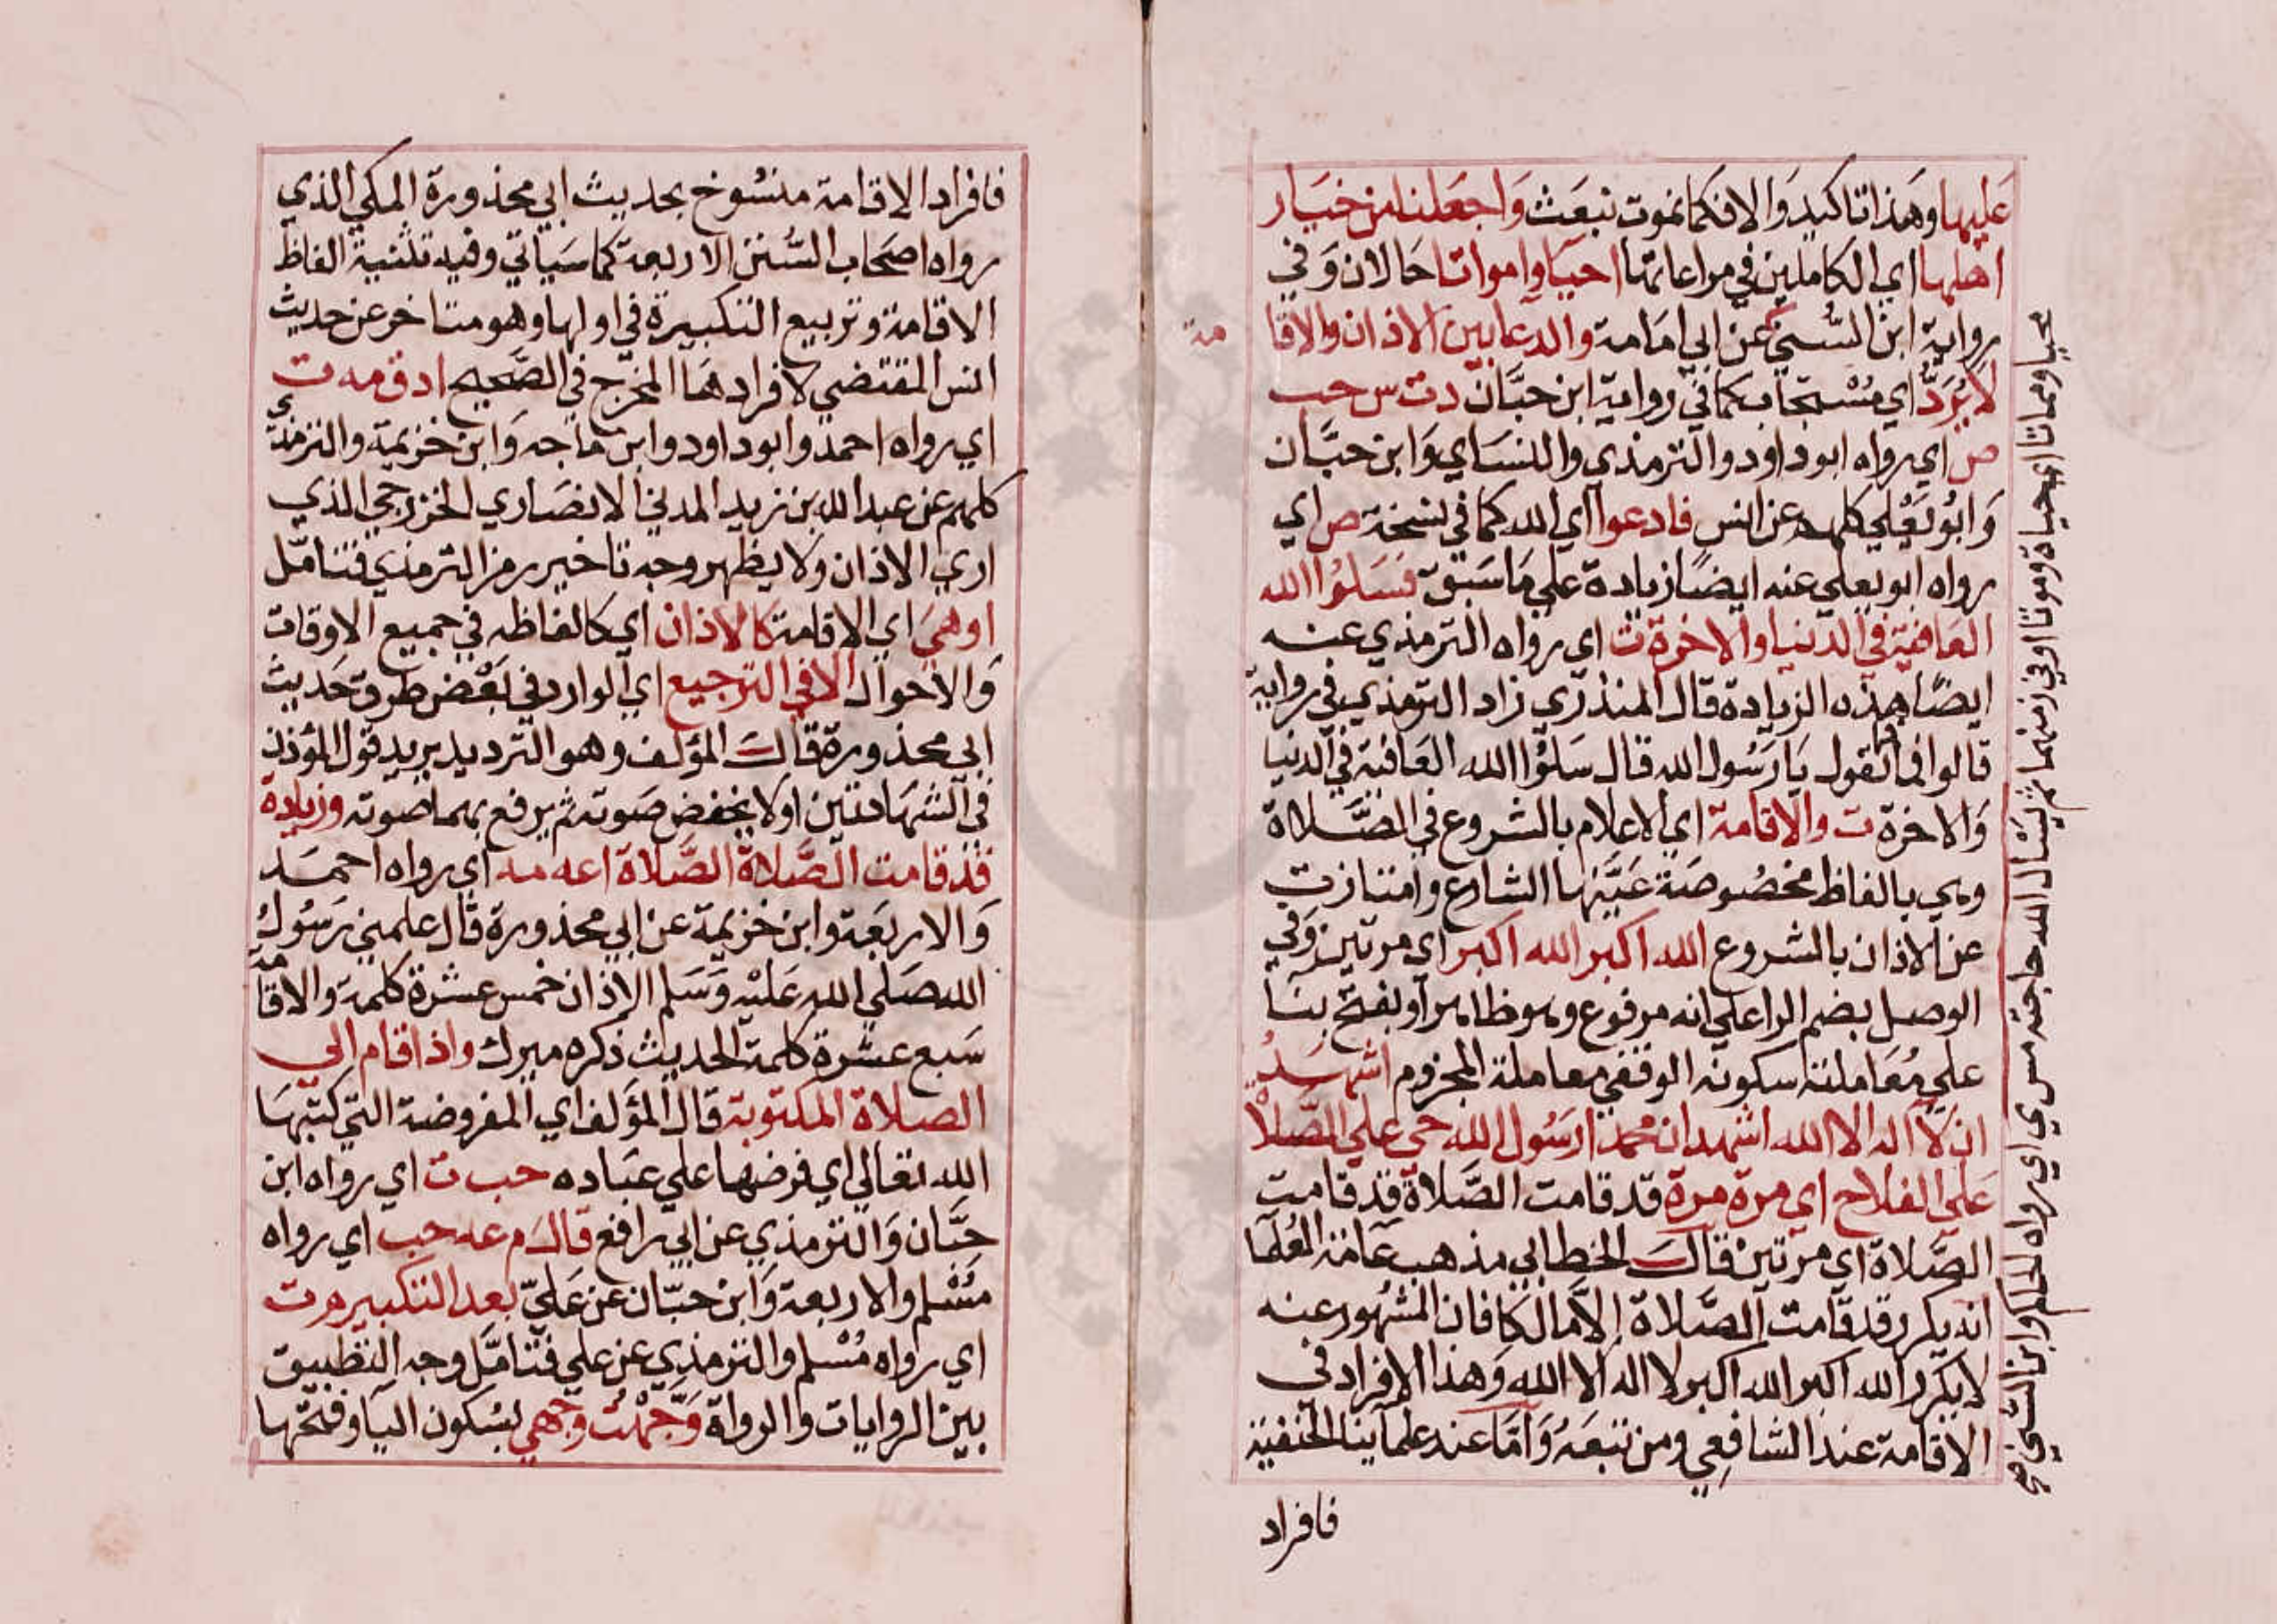 عليها وهذا تاكيد والا فكما نموت نبعث واجعلنا من خيار
اهلها اي الكاملين في مراعاتها احيا وامواتا حالان وفي
رواية ابن السني عن ابي امامة والدعا بين الاذان والاقا
مة
لا يرد اي مستجاب كما في رواية ابن حبان د ت س حب
ص اي رواه ابو داود والترمذي والنسائي وابن حبان
وابو يعلي كلهم عن انس فادعوا اي الله كما في نسخة ص اي
رواه ابو يعلي عنه ايضا زيادة علي ما سبق فسلوا الله
العافية في الدنيا والاخرة ت اي رواه الترمذي عنه
ايضا هذه الزيادة قال المنذري زاد الترمذي في رواية
قالوا فما نقول يا رسول الله قال سلوا الله العافية في الدنيا
والاخرة ت والاقامة اي الاعلام بالشروع في الصلاة
وهي بالفاظ مخصوصة عينها الشارع وامتازت
عن الاذان بالشروع الله اكبر الله اكبر اي مرتين وفي
الوصل بضم الرا علي انه مرفوع وهو ظاهر او بفتح بنا
علي معاملة سكونه الوقفي معاملة المجزوم اشهد
ان لا اله الا الله اشهد ان محمدا رسول الله حي علي الصلا
علي الفلاح اي مرة مرة قد قامت الصلاة قد قامت
الصلاة اي مرتين قال الخطابي مذهب عامة العلما
انه يكرر قد قامت الصلاة الا مالكا فان المشهور عنه
لا يكرر الله اكبر الله اكبر لا اله الا الله وهذا الافراد في
الاقامة عند الشافعي ومن تبعه واما عند علماينا الحنفية
فافراد
محيا ومماتا اي حياة وموتا او في زمنهما ثم ليسال الله حاجته مس ي اي رواه الحاكم وابن السني
فافراد الاقامة منسوخ بحديث ابي محذورة المكي الذي
رواه اصحاب السنن الاربعة كما سياتي وفيه تثنية الفاظ
الاقامة وتربيع التكبيرة في اولها وهو متاخر عن حديث
انس المقتضي لافرادها المخرج في الصحيح ا د ق مه ت
اي رواه احمد وابو داود وابن ماجه وابن خزيمة والترمذي
كلهم عن عبد الله بن زيد المدني الانصاري الخزرجي الذي
اري الاذان ولا يظهر وجه تاخير رمز الترمذي فتامل
او هي اي الاقامة كالاذان اي كالفاظه في جميع الاوقات
والاحوال الا في الترجيع اي الوارد في بعض طرق حديث
ابي محذورة قال المؤلف وهو الترديد يريد قول المؤذن
في الشهادتين اولا يخفض صوته ثم يرفع بهما صوته وزيادة
قد قامت الصلاة الصلاة ا عه مه اي رواه احمد
والاربعة وابن خزيمة عن ابي محذورة قال علمني رسول
الله صلي الله عليه وسلم الاذان خمس عشرة كلمة والاقامة
سبع عشرة كلمة الحديث ذكره ميرك واذا قام الي
الصلاة المكتوبة قال المؤلف اي المفروضة التي كتبها
الله تعالي اي فرضها علي عباده حب ت اي رواه ابن
حبان والترمذي عن ابي رافع قال م عه حب اي رواه
مسلم والاربعة وابن حبان عن علي بعد التكبير م ت
اي رواه مسلم والترمذي عن علي فتامل وجه التطبيق
بين الروايات والرواة وجهت وجهي بسكون اليا وفتحها